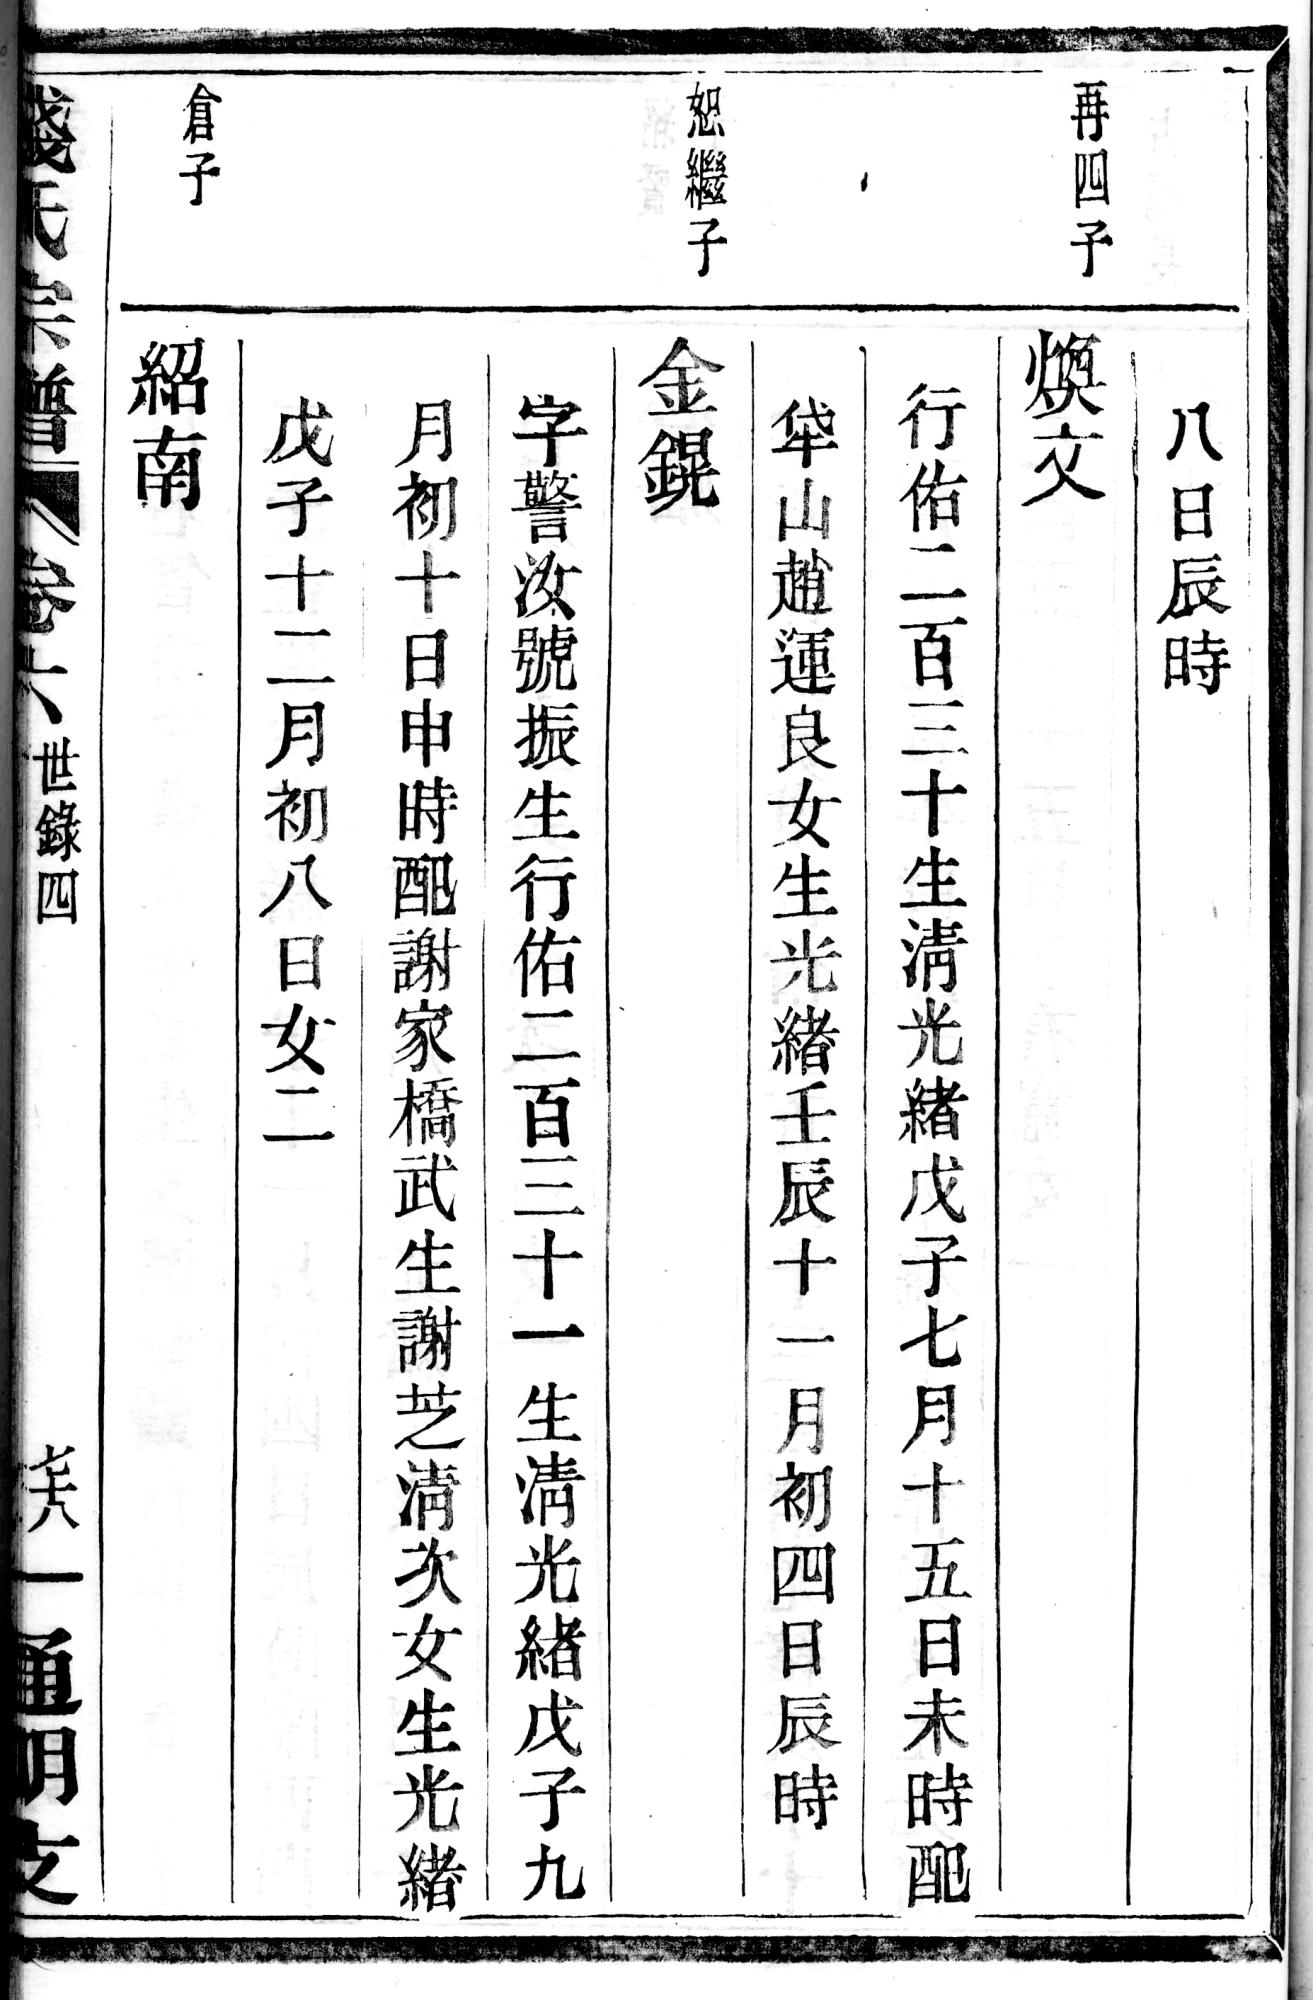 八日辰時
再四子
煥文
行佑二百三十生淸光緒戊子七月十五日未時配
牮山趙運良女生光緒壬辰十一月初四日辰時
恕繼子
金錕
字警汝號振生行佑二百三十一生淸光緒戊子九
月初十日申時配謝家橋武生謝芝淸次女生光緒
戊子十二月初八日女二
倉子
紹南
錢氏宗譜
卷六
世錄四
通明支